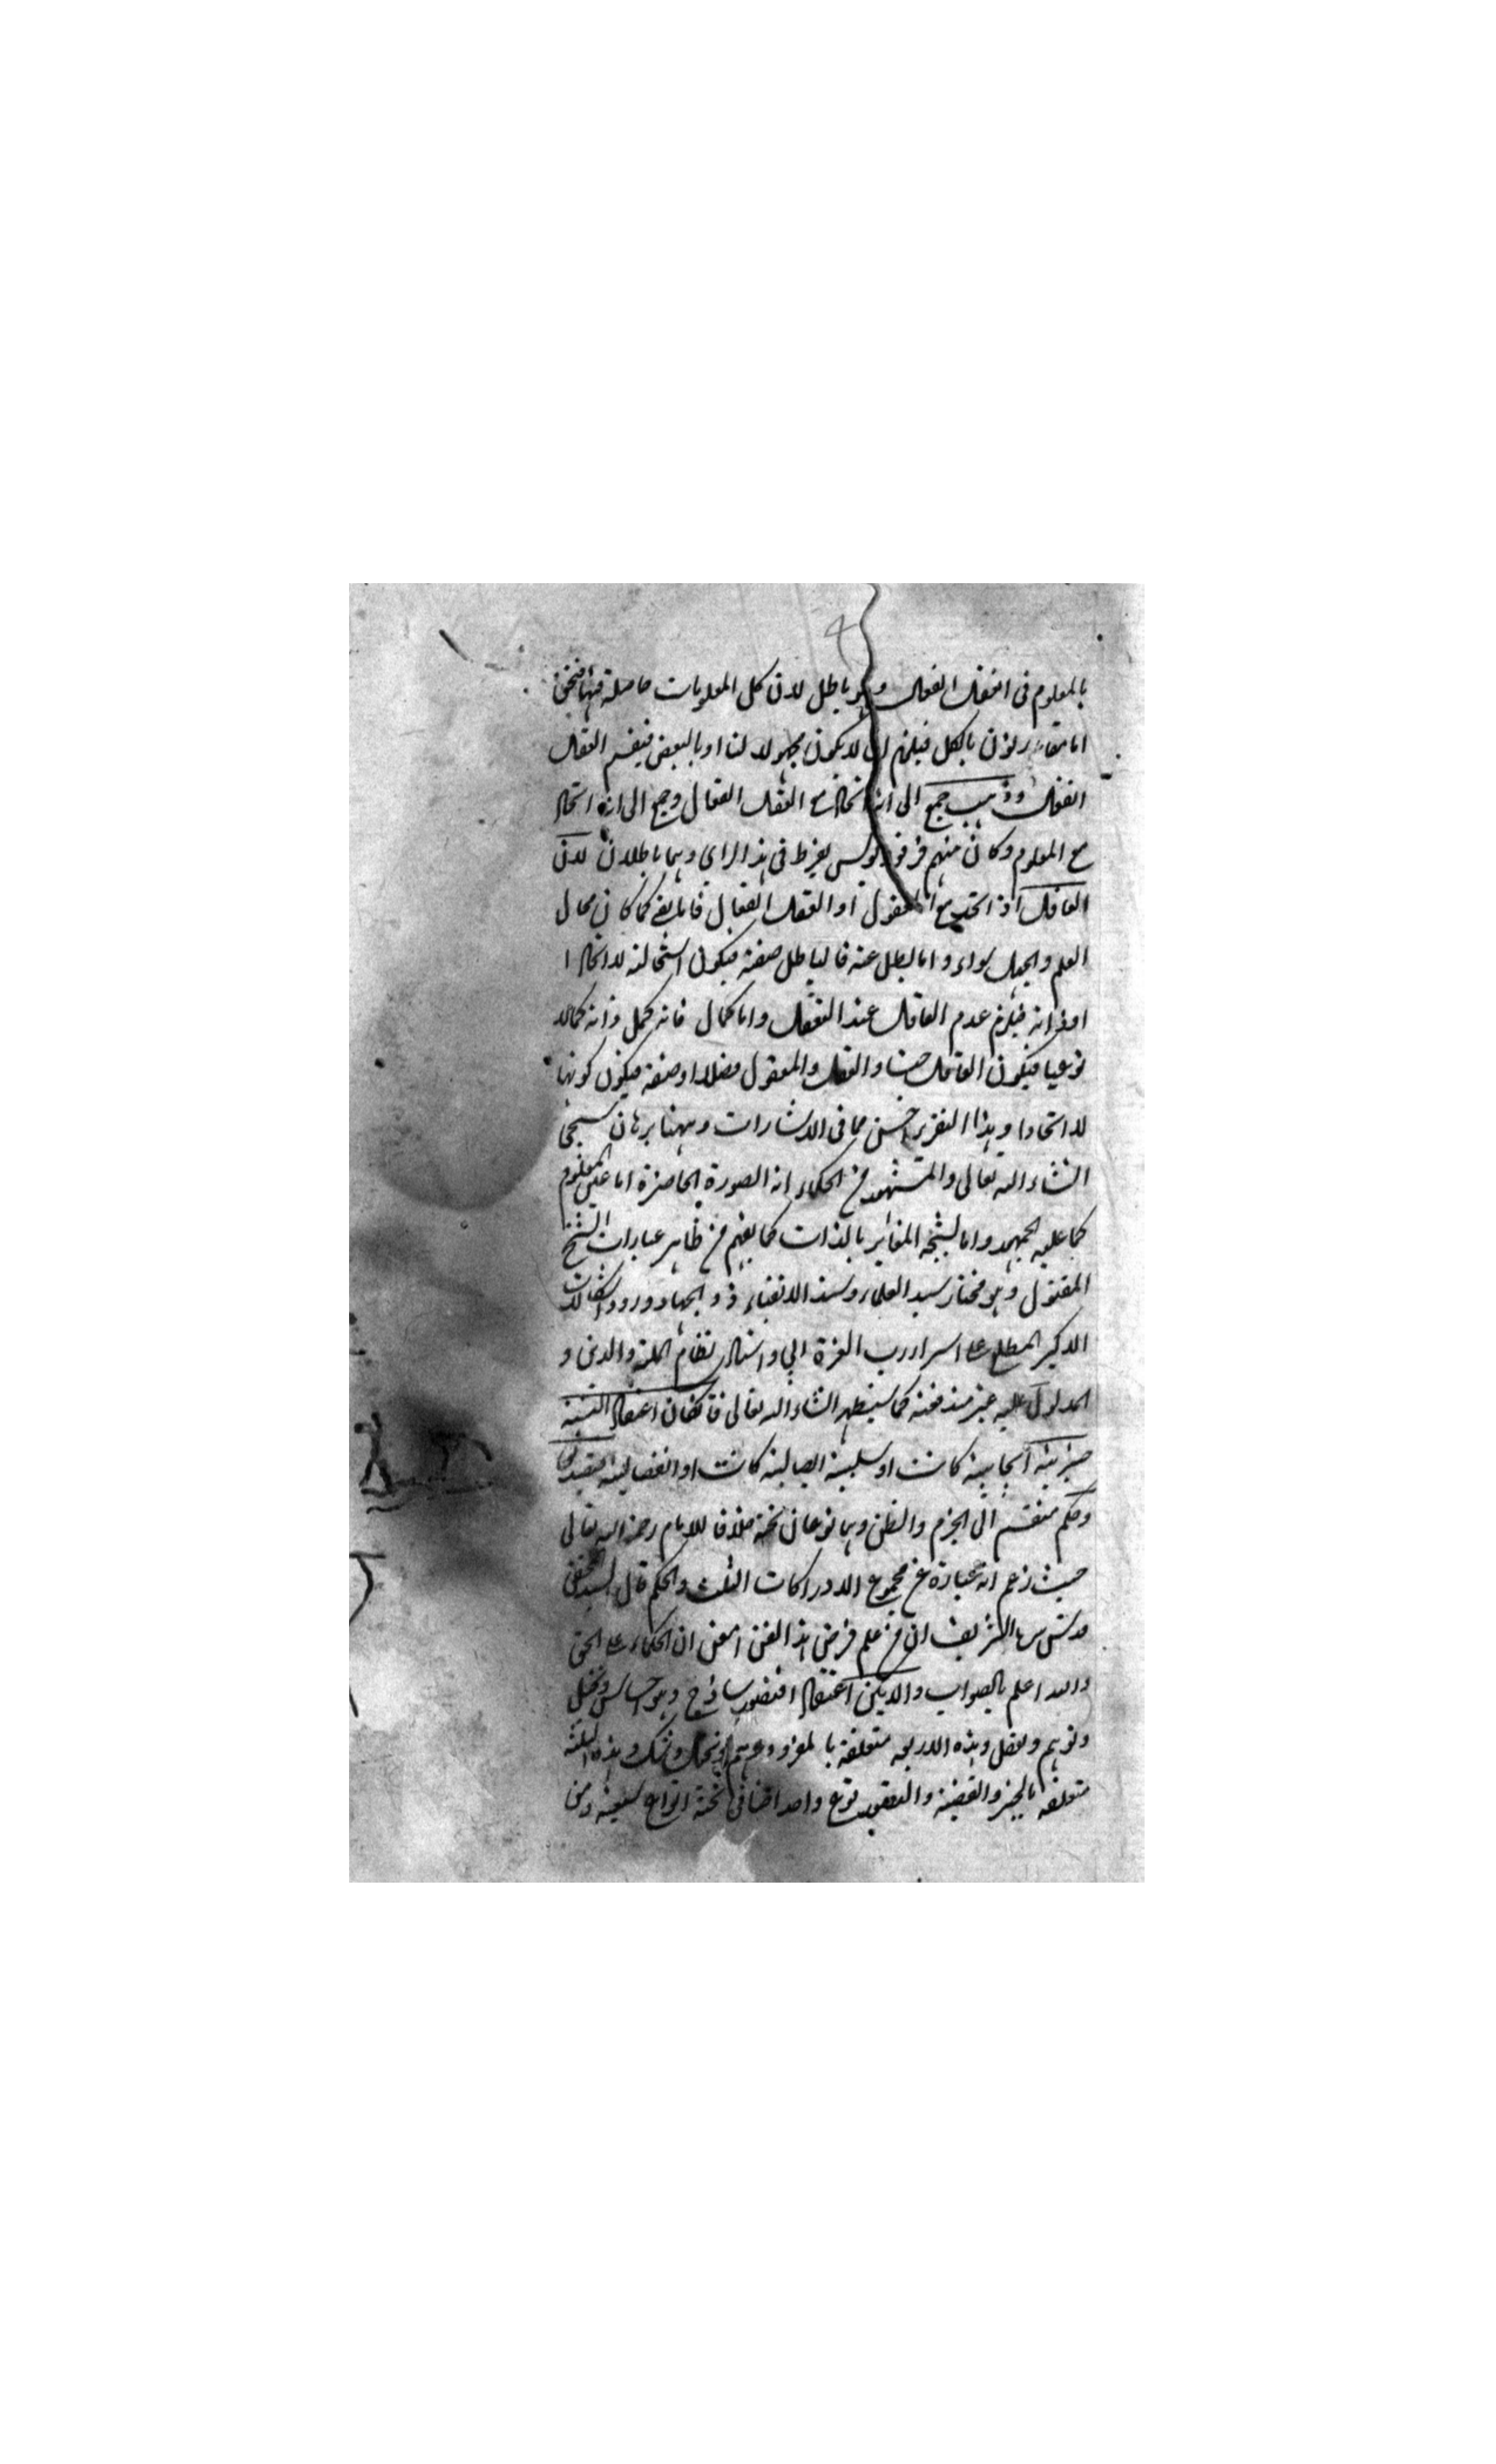 بالمعلوم فى العقل الفعال وهو باطل لان كل المعلومات حاصلة فيها فنحن
اما مقارنون بالكل فيلزم ان لا يكون مجهولا لنا او بالبعض فينقسم العقل
الفعال وذهب جمع الى انه اتحاد مع العقل الفعال وجمع الى انه اتحاد
مع المعلوم وكان منهم فرفوريوس يفرط فى هذا الراى وهما باطلان لان
العاقل اذا اتحد مع المعقول او العقل الفعال فاما بقى كما كان فحال
العلم والجهل سواء واما بطل عنه فالباطل صفته فيكون استحالة لا اتحادا
او ذاته فيلزم عدم العاقل عند التعقل واما كمال فانه كمل ذاته كمالا
نوعيا فيكون العاقل جنسا والعقل والمعقول فصلا او صفة فيكون كونها
لا اتحادا وهذا التقرير احسن مما فى الاشارات وههنا برهان سيجئ
انشاء الله تعالى والمشهور من الحكماء انه الصورة الحاضرة اما عين المعلوم
كما عليه الجمهور واما لشبحه المغاير بالذات كما يفهم من ظاهر عبارات الشيخ
المقتول وهو مختار سيد العلماء وسند الاتقياء ورود اشكالات
الذكير المطلع على اسرار رب العزة ابى واستاد نظام الملة والدين و
المدلول عليه غير مندفعة كما سيظهر انشاء الله تعالى فان كان اعتقادا لنسبة
خبرية ايجابية كانت او سلبية اتصالية كانت او انفصالية فتصديق
وحكم منقسم الى الجزم والظن وهما نوعان تحته خلافا للامام رحمه الله تعالى
حيث زعم انه عبارة عن مجموع الادراكات الثلث والحكم قال السيد المحقق
قدس سره الشريف ان من علم غرض هذا الفن امعن ان الحكماء على الحق
والله اعلم بالصواب وان لم يكن اعتقادا فتصور ساذج وهو احساس وتخيل
وتوهم وتعقل وهذه الاربعة متعلقة بالمفرد ووهم وتخييل وشك وهذه الثلثة
متعلقة بالخبر والقضية والتصور نوع واحد اضافى تحته انواع سبعة ومن